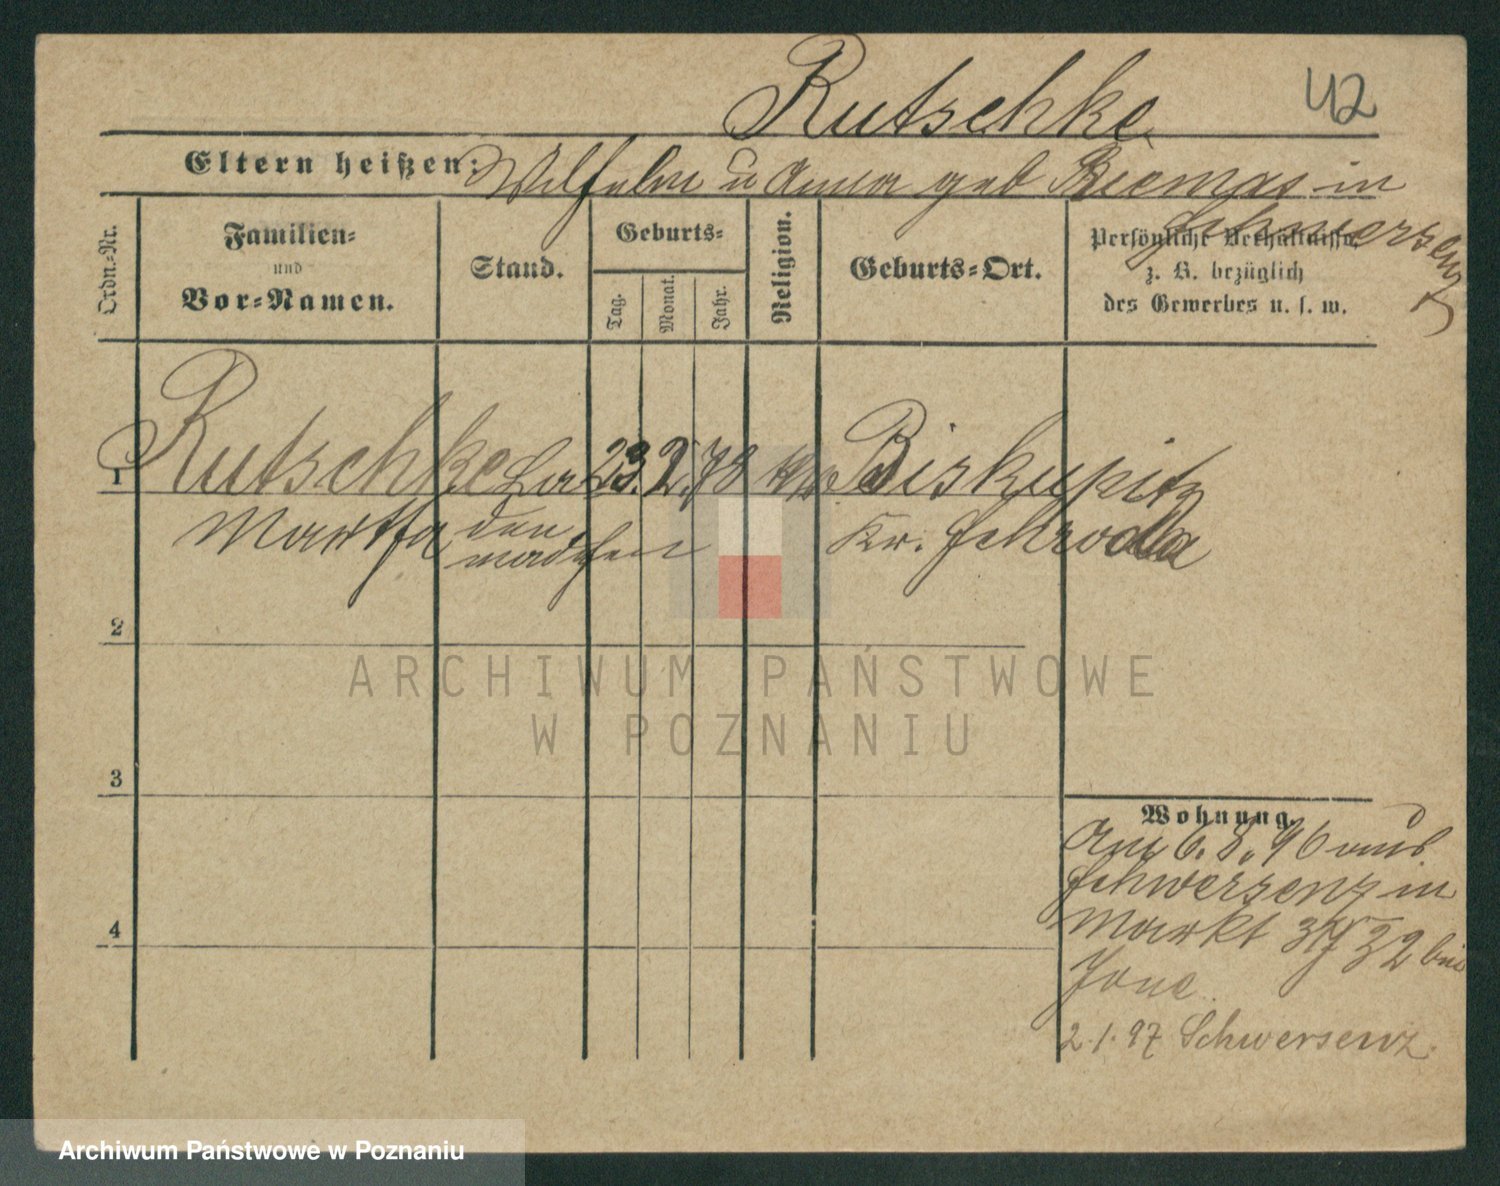 Rutschke
42
Eltern heißen: Wilhelm u Anna geb in
Schwersenz
Ordn.-Nr.
Familien-
und
Vor-Namen.
Stand.
Geburts-
Tag.
Monat.
Jahr.
Religion.
Geburts-Ort.
Persönliche Verhältnisse
z. B. bezüglich
des Gewerbes u. s. w.
1
Rutschke La 23. 2. 78 Biskupitz
Martha den mädchen Kr. Schroda
2
3
4
Wohnung.
Am 6. 8. 96 aus
Schwersenz in
Markt 32 bei
2.1.97 Schwersenz.
ARCHIWUM PAŃSTWOWE
W POZNANIU
Archiwum Państwowe w Poznaniu